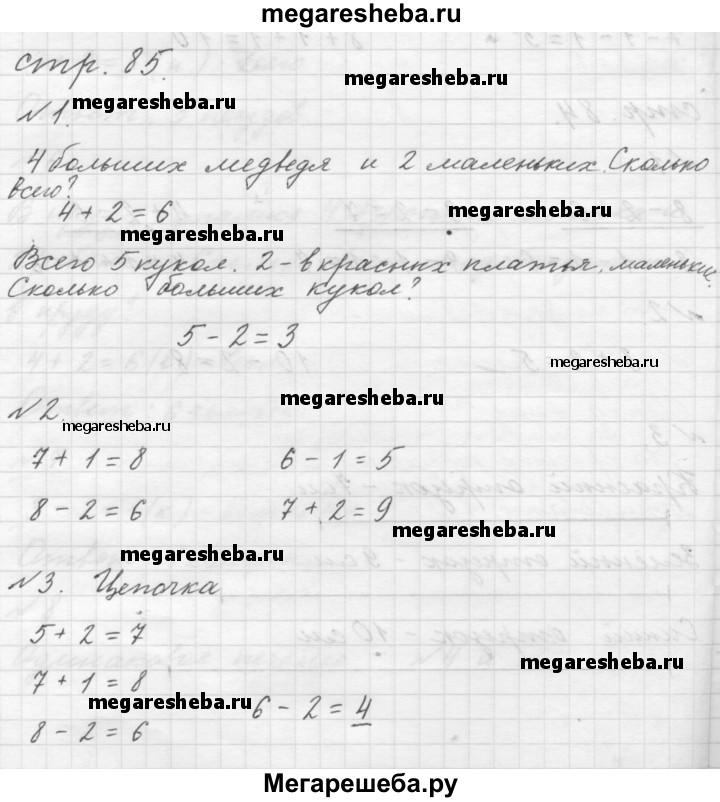 megaresheba.ru
стр. 85.
megaresheba.ru
№1.
4 больших медведя и 2 маленьких. Сколько
всего?
4 + 2 = 6
megaresheba.ru
megaresheba.ru
Всего 5 кукол. 2 - в красных платья, маленькие.
Сколько больших кукол?
5 - 2 = 3
megaresheba.ru
№2
megaresheba.ru
megaresheba.ru
7 + 1 = 8 6 - 1 = 5
8 - 2 = 6 7 + 2 = 9
megaresheba.ru
megaresheba.ru
№3. Цепочка
5 + 2 = 7
megaresheba.ru
7 + 1 = 8
megaresheba.ru
6 - 2 = 4
8 - 2 = 6
Мегарешеба.ру